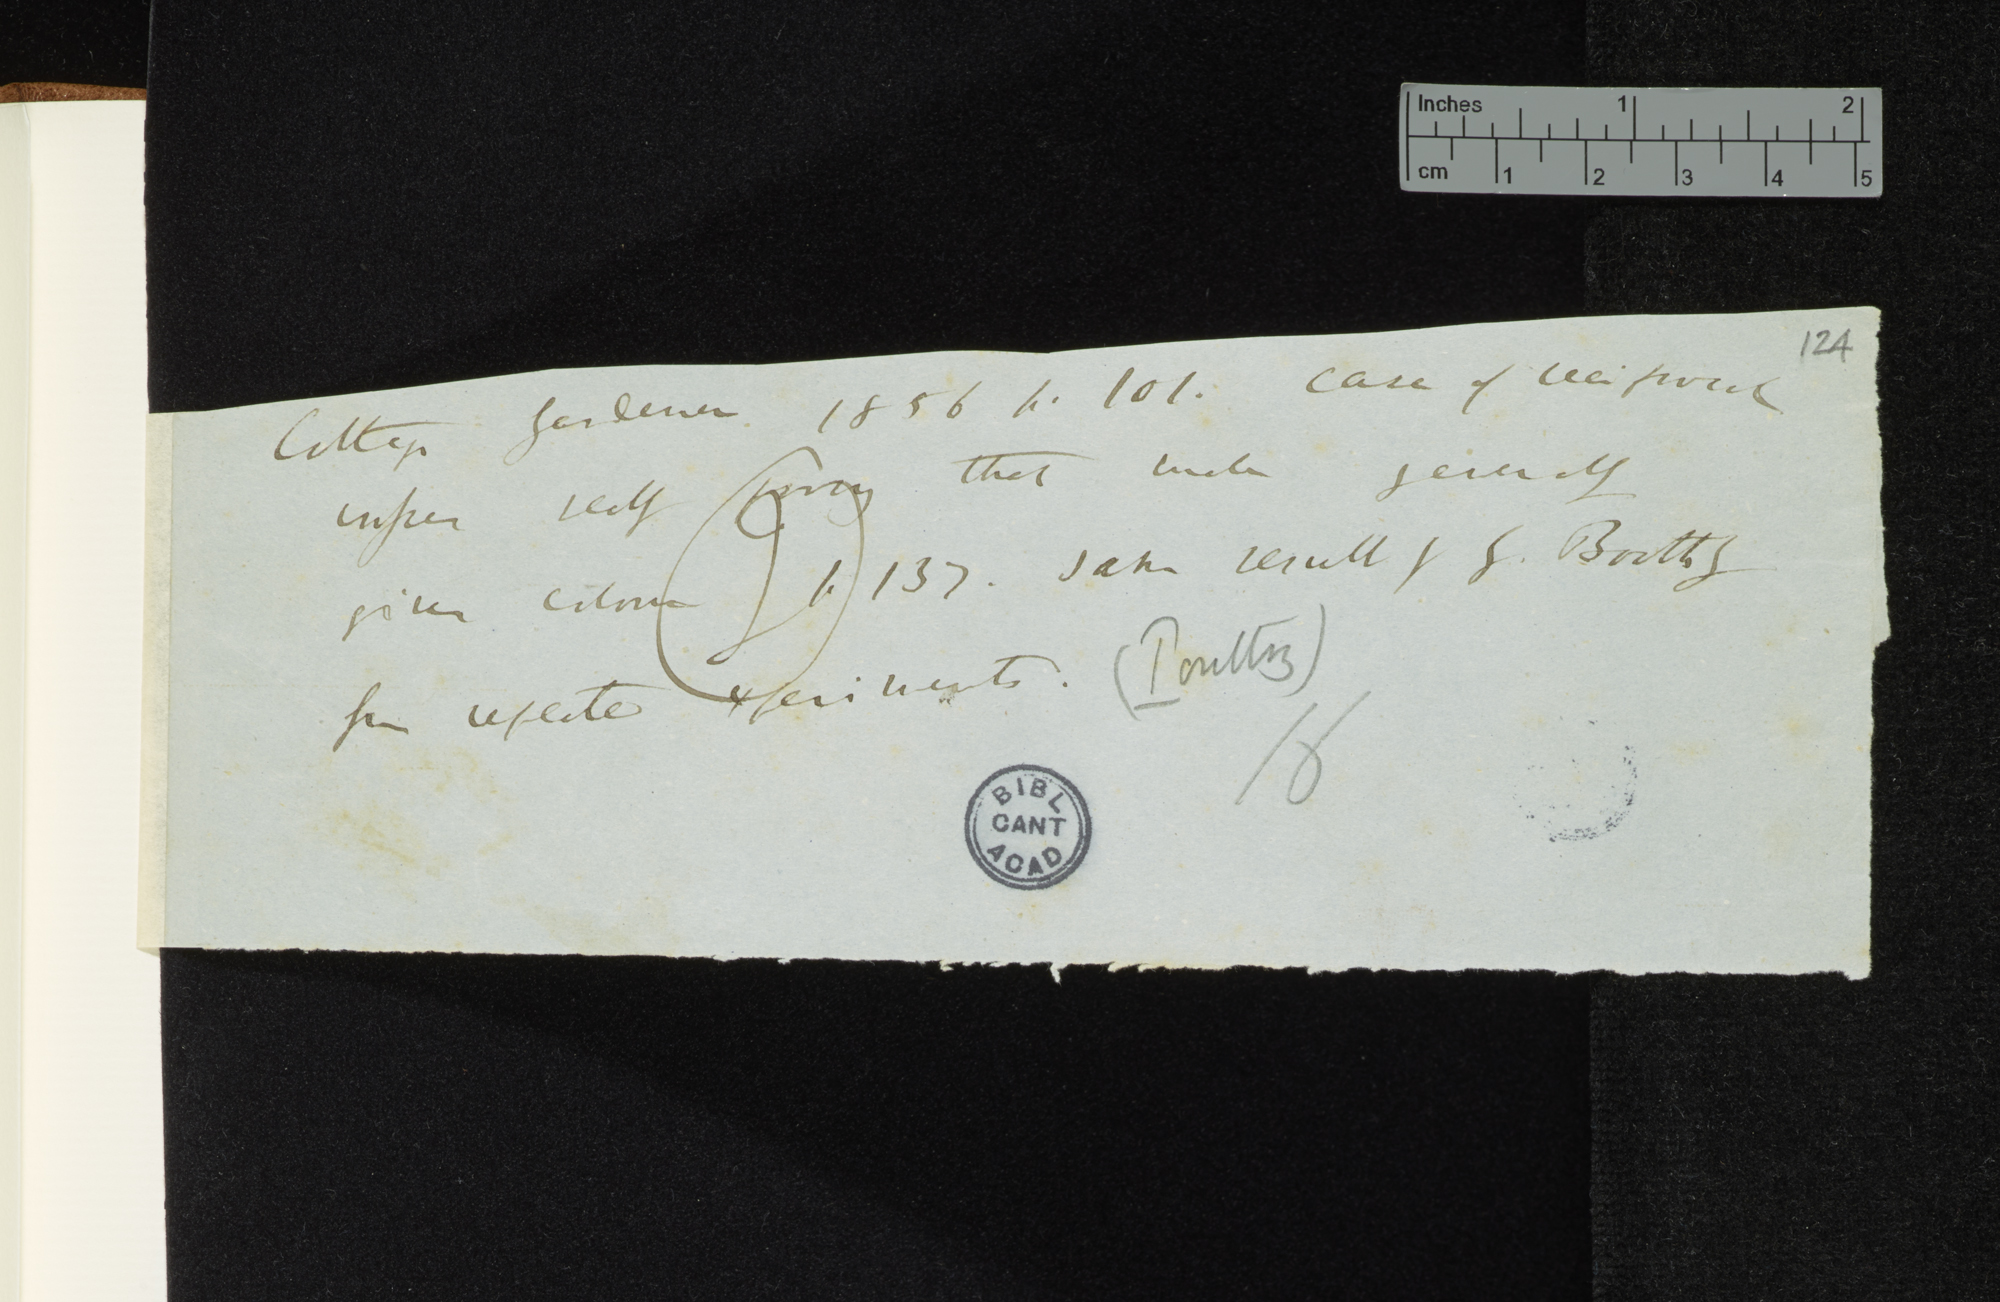 Inches 1 2
cm 1 2 3 4 5
124
Cottage Gardener 1856 p. 101. Case of reciprocal
crosses really proving that male generally
gives colour p 137. Same result of G. Boothby
from repeated experiments. (Poultry)
BIBL
CANT
ACAD